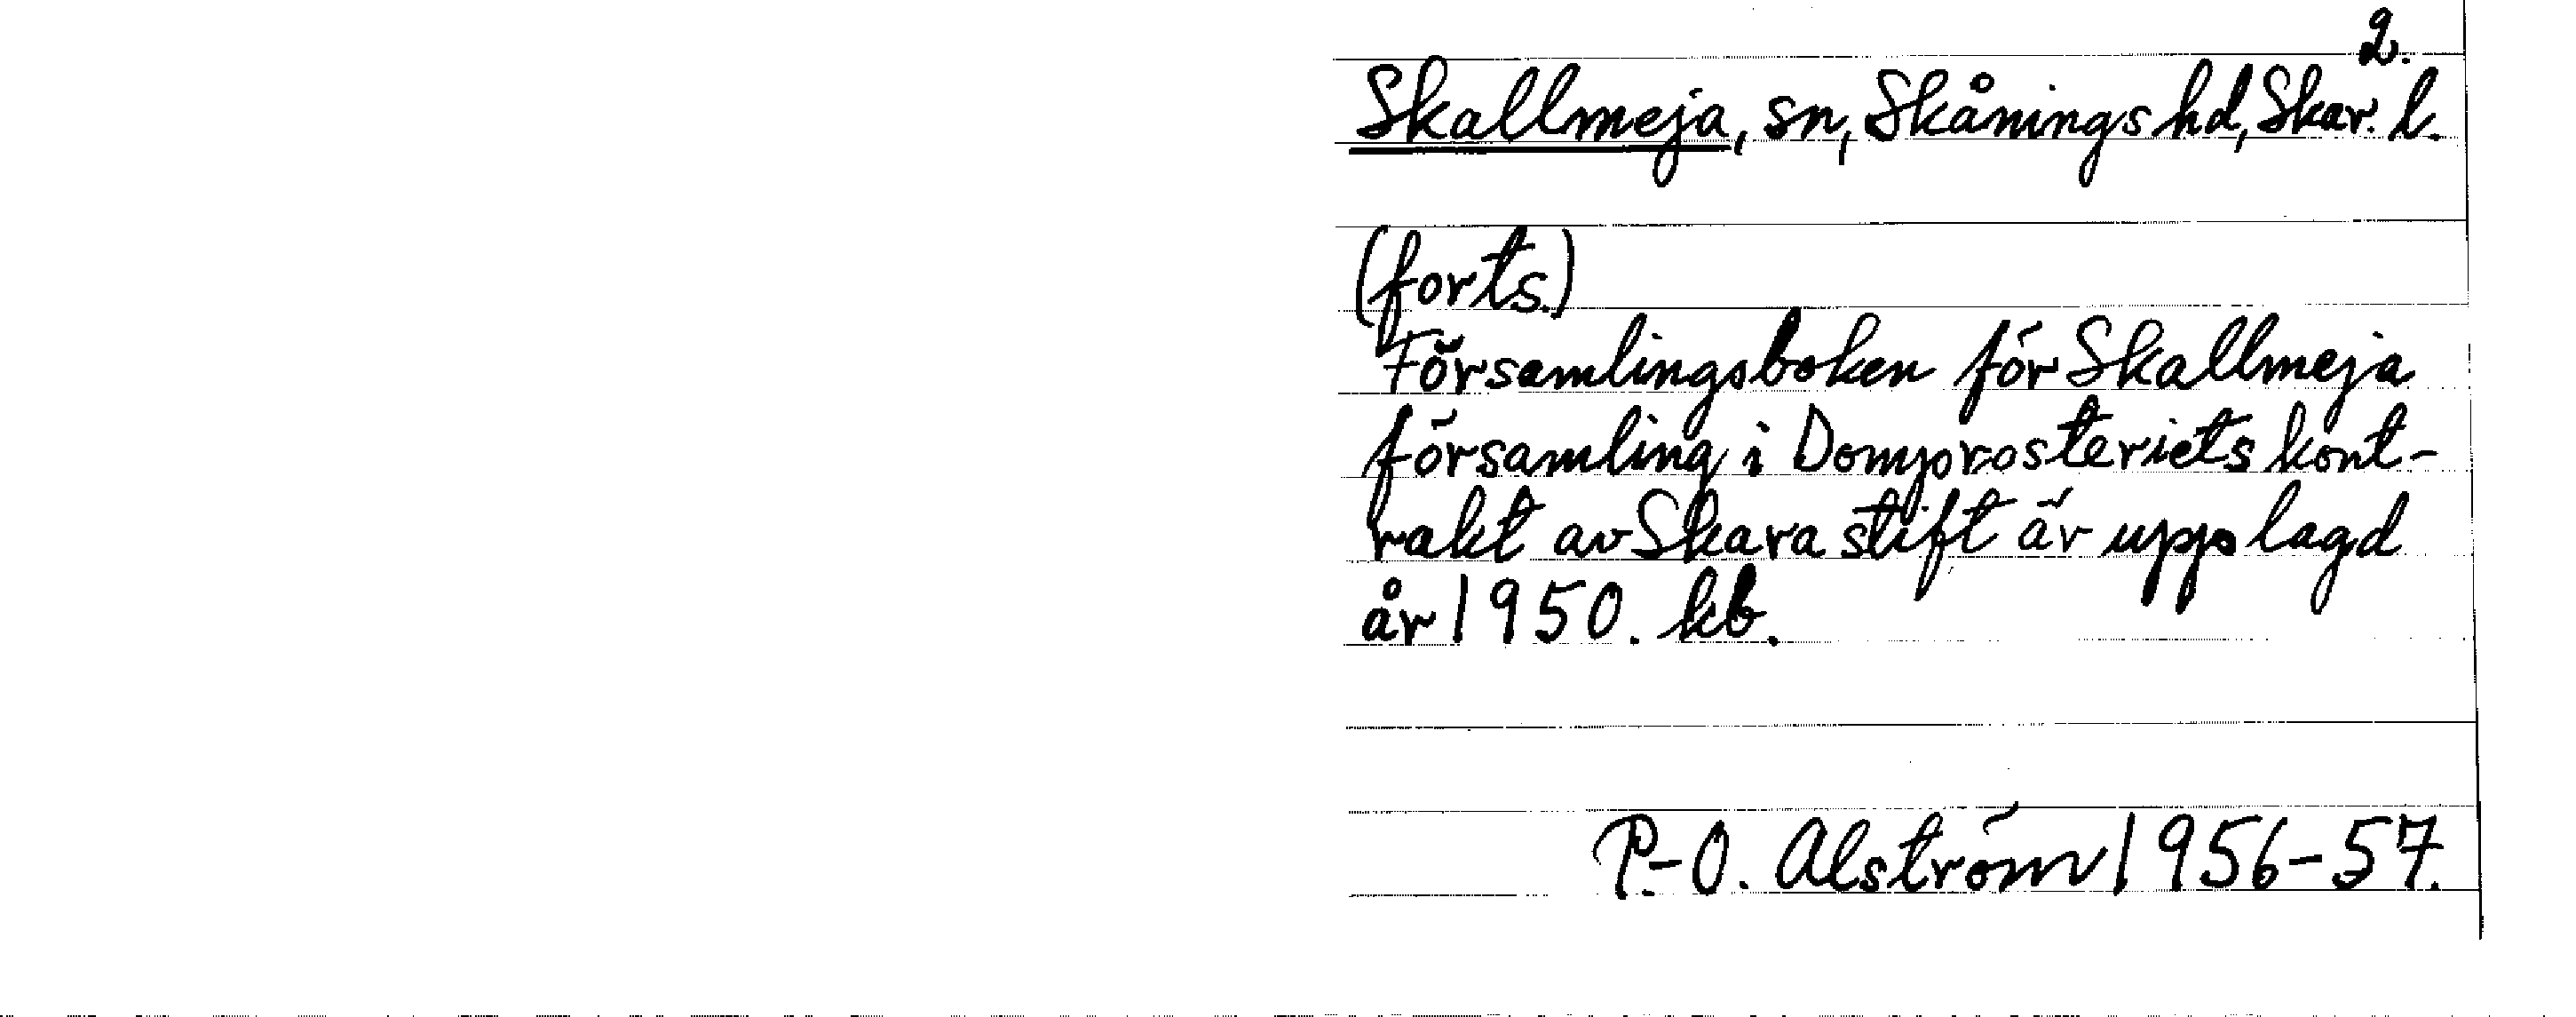 2.
Skallmeja, sn, Skånings hd, Skar. l.
(forts.)
Församlingsboken för Skallmeja
församling i Domprosteriets kont-
rakt av Skara stift är upplagd
år 1950. kb.
P.-O. Alström 1956-57.